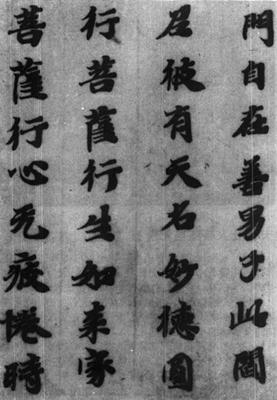 門自在善男子此閻
尼彼有天名妙德圓
行菩薩行生如來家
菩薩行心无疲惓時